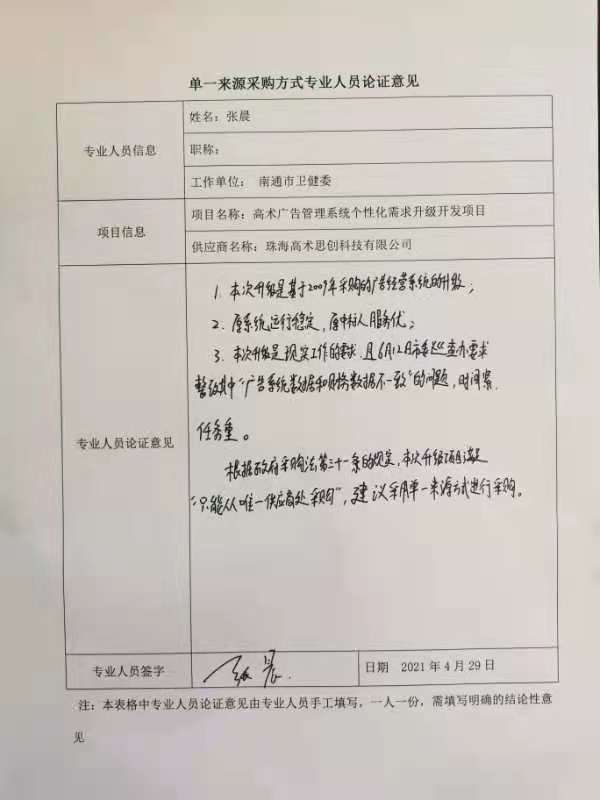 单一来源采购方式专业人员论证意见
专业人员信息
姓名：张晨
职称：
工作单位： 南通市卫健委
项目信息
项目名称：高术广告管理系统个性化需求升级开发项目
供应商名称：珠海高术思创科技有限公司
专业人员论证意见
1. 本次升级是基于2009年采购的广告经营系统的升级；
2. 原系统运行稳定，原中标人服务优；
3. 本次升级是现实工作的需求，且6月12日市委巡查办需求
整改其中“广告系统数据和财务数据不一致”的问题，时间紧
任务重。
根据政府采购法第三十一条的规定，本次升级项目满足
“只能从唯一供应商处采购”，建议采用单一来源方式进行采购。
专业人员签字
张晨
日期 2021年4月29日
注：本表格中专业人员论证意见由专业人员手工填写，一人一份，需填写明确的结论性意
见